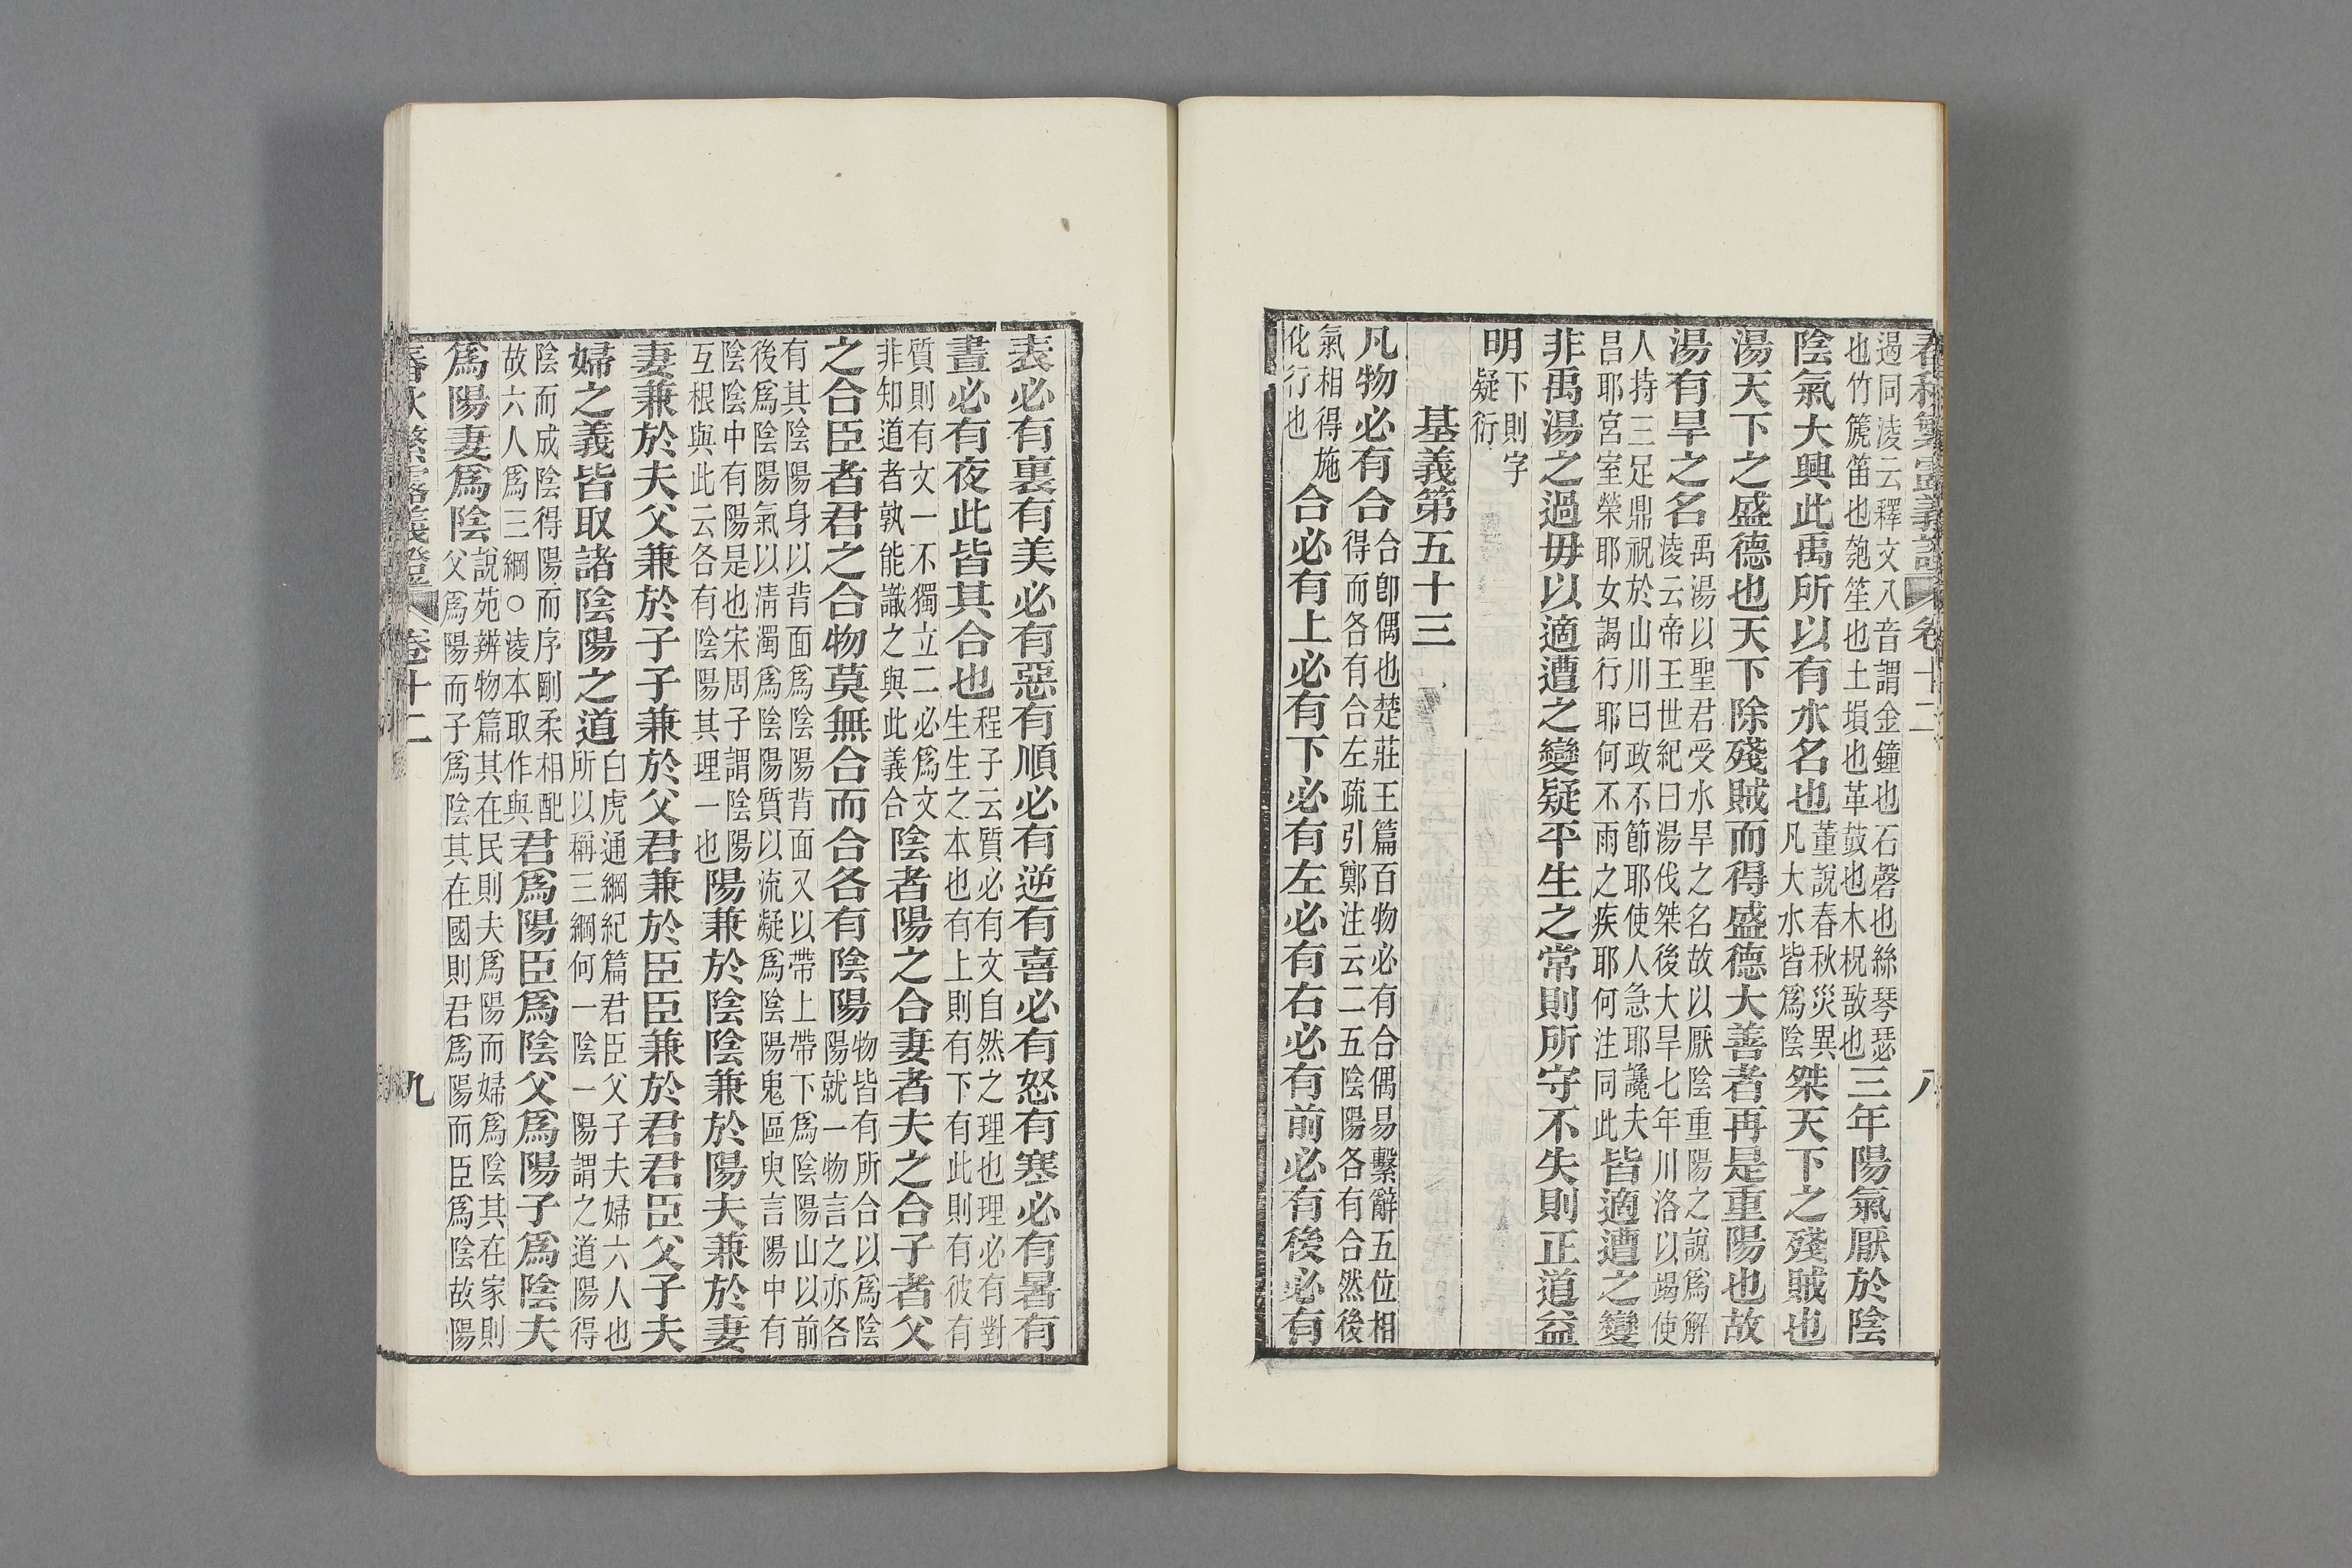 春秋繁露義證 卷十二 八
遏同淩云釋文八音謂金鐘也石磬也絲琴瑟
也竹箎笛也匏笙也土塤也革鼓也木柷敔也
三年陽氣厭於陰
陰氣大興此禹所以有水名也
董說春秋災異
凡大水皆爲陰
桀天下之殘賊也
湯天下之盛德也天下除殘賊而得盛德大善者再是重陽也故
湯有旱之名
禹湯以聖君受水旱之名故以厭陰重陽之說爲解
淩云帝王世紀曰湯伐桀後大旱七年川洛以竭使
人持三足鼎祝於山川曰政不節耶使人急耶讒夫
昌耶宮室榮耶女謁行耶何不雨之疾耶何注同此
皆適遭之變
非禹湯之過毋以適遭之變疑平生之常則所守不失則正道益
明
下則字
疑衍
基義第五十三
凡物必有合
合卽偶也楚莊王篇百物必有合偶易繫辭五位相
得而各有合左疏引鄭注云二五陰陽各有合然後
氣相得施
化行也
合必有上必有下必有左必有右必有前必有後必有
表必有裏有美必有惡有順必有逆有喜必有怒有寒必有暑有
晝必有夜此皆其合也
程子云質必有文自然之理也理必有對
生生之本也有上則有下有此則有彼有
質則有文一不獨立二必爲文
非知道者孰能識之與此義合
陰者陽之合妻者夫之合子者父
之合臣者君之合物莫無合而合各有陰陽
物皆有所合以爲陰
陽就一物言之亦各
有其陰陽身以背面爲陰陽背面又以帶上帶下爲陰陽山以前
後爲陰陽氣以淸濁爲陰陽質以流凝爲陰陽鬼區臾言陽中有
陰陰中有陽是也宋周子謂陰陽
互根與此云各有陰陽其理一也
陽兼於陰陰兼於陽夫兼於妻
妻兼於夫父兼於子子兼於父君兼於臣臣兼於君君臣父子夫
婦之義皆取諸陰陽之道
白虎通綱紀篇君臣父子夫婦六人也
所以稱三綱何一陰一陽謂之道陽得
陰而成陰得陽而序剛柔相配
故六人爲三綱○淩本取作與
君爲陽臣爲陰父爲陽子爲陰夫
爲陽妻爲陰
說苑辨物篇其在民則夫爲陽而婦爲陰其在家則
父爲陽而子爲陰其在國則君爲陽而臣爲陰故陽
春秋繁露義證 卷十二 九